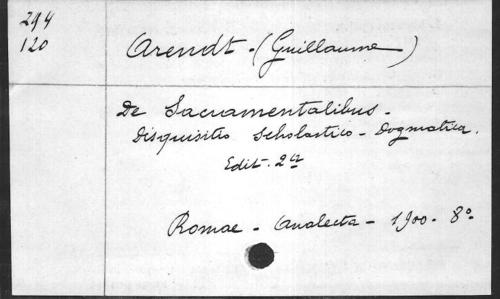 294
120
Arendt - (Guillaume)
De Sacramentalibus -
Disquisitio Scholastico - Dogmatica.
Edit. 2a
Romae - Analecta - 1900 - 8o